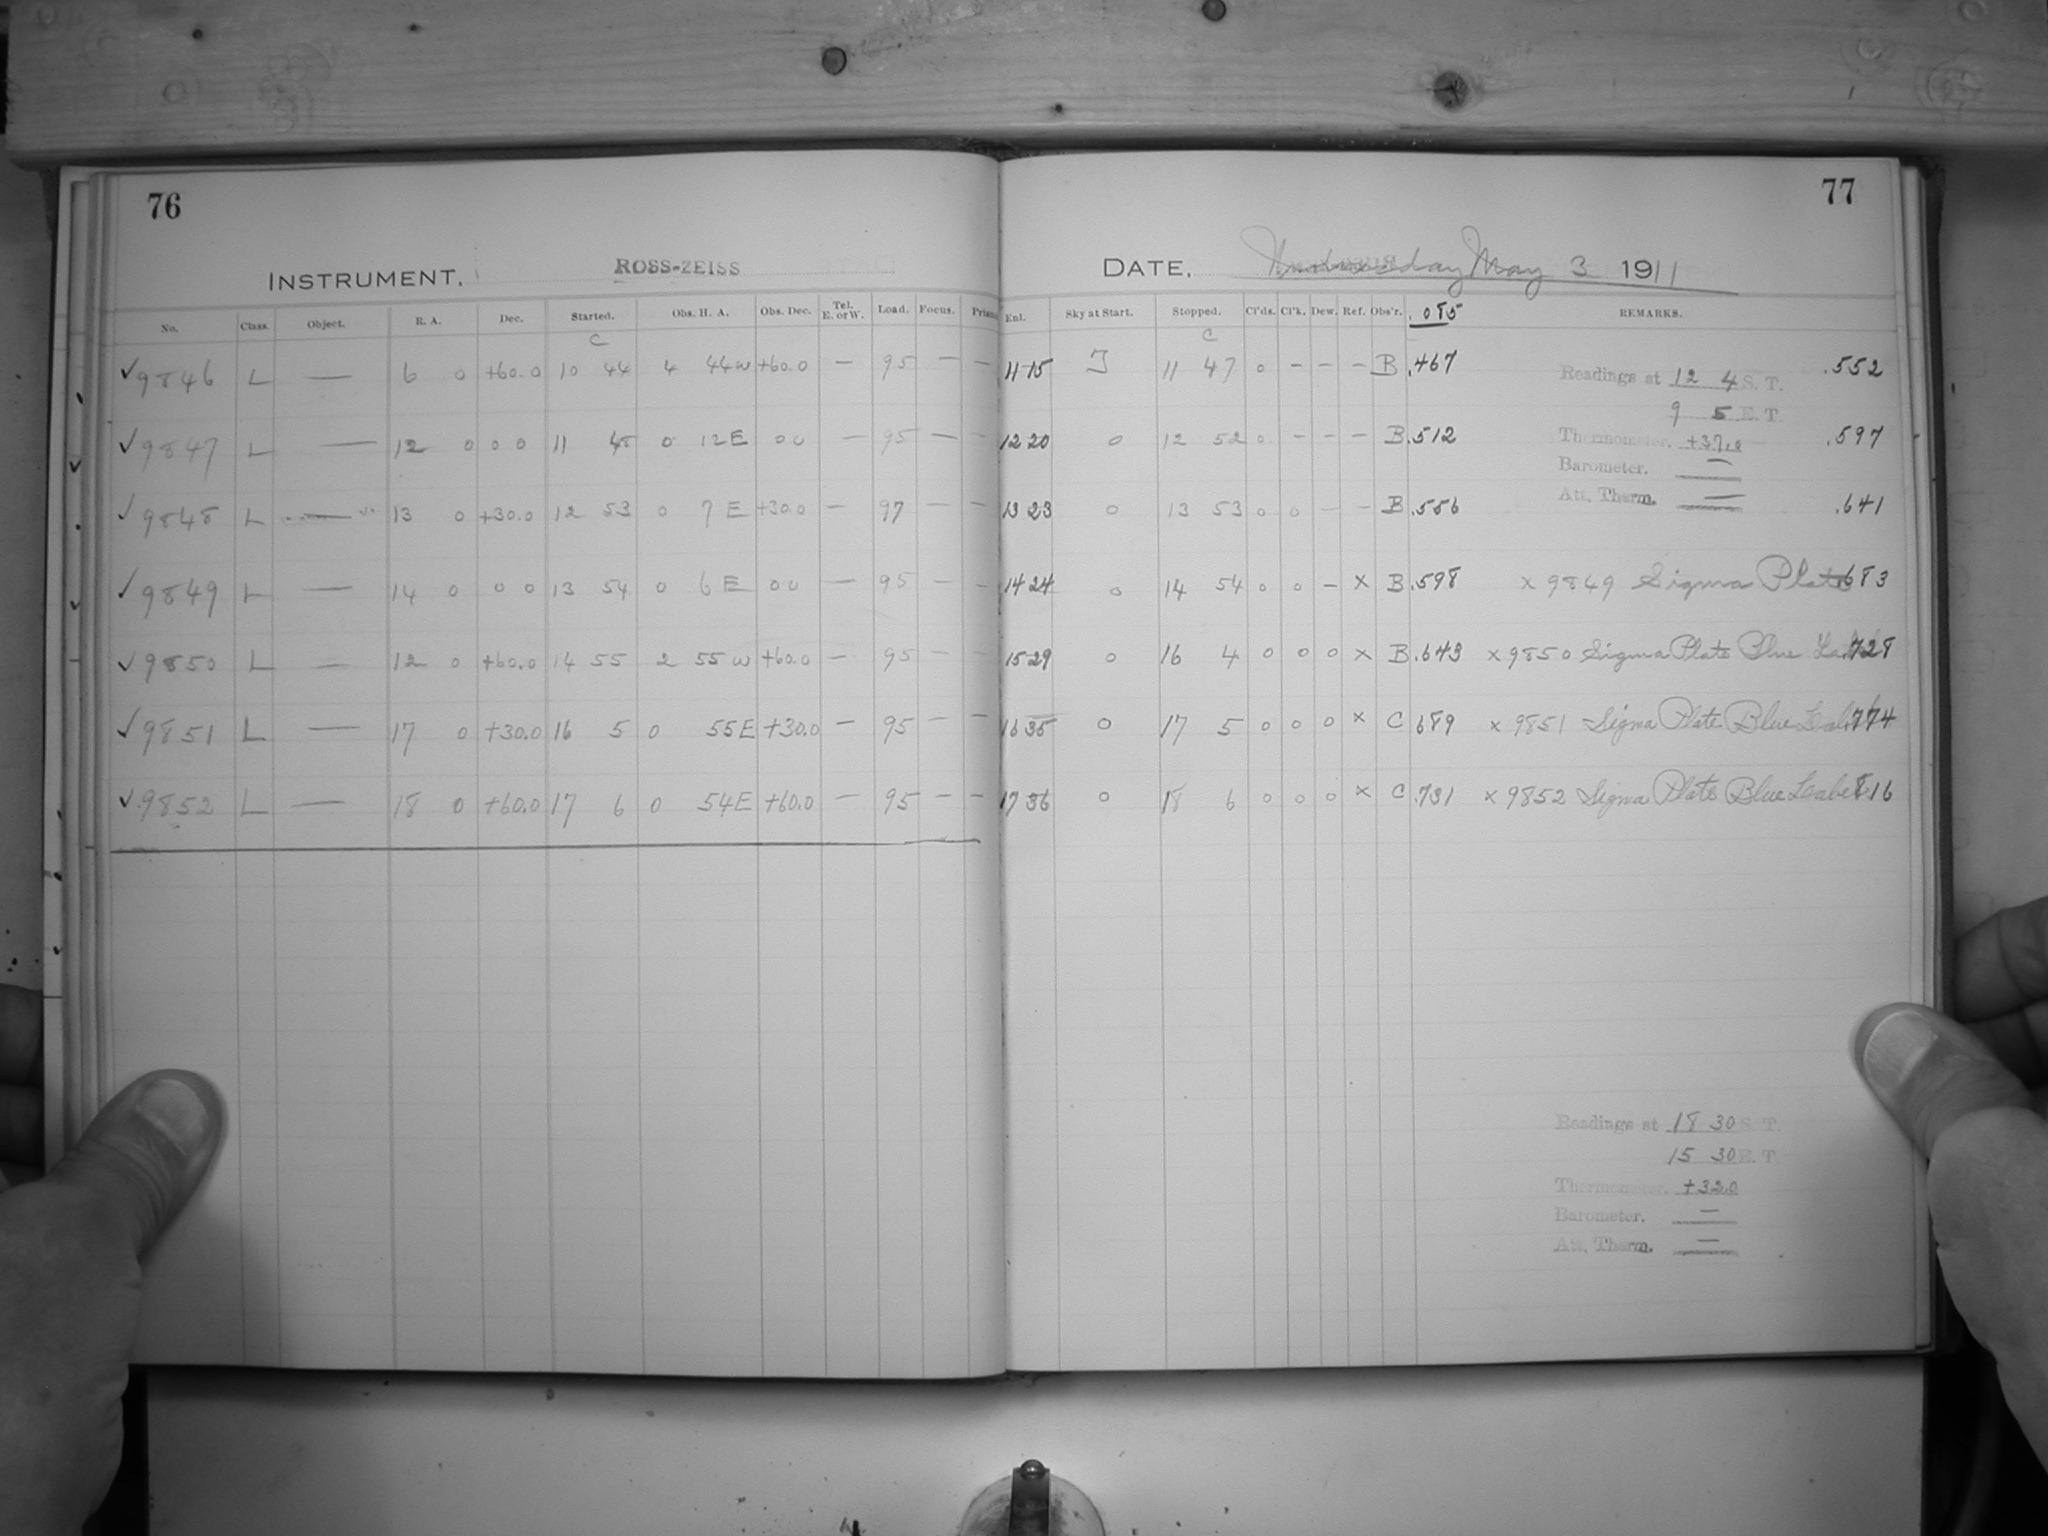 76
77
INSTRUMENT, ROSS-ZEISS
DATE, Wednesday May 3 1911
No. Class. Object. R. A. Dec. Started. Obs. H. A. Obs. Dec. Tel. E. or W. Load. Focus. Prism Enl. Sky at Start. Stopped. Cl'ds. Cl'k. Dew. Ref. Obs'r. .085 REMARKS.
C C
✓ 9846 L — 6 0 +60.0 10 44 4 44 W +60.0 — 95 — — 11 15 J 11 47 0 - - - B .467 .552
Readings at 12 4 S. T.
9 5 E. T.
✓ 9847 L — 12 0 0 0 11 48 0 12 E 0 0 — 95 — — 12 20 0 12 52 0 - - - B .512 Thermometer. +37.0 .597
Barometer. —
Att. Therm. —
✓ 9848 L — 13 0 +30.0 12 53 0 7 E +30.0 — 97 — — 13 23 0 13 53 0 0 - - B .556 .641
✓ 9849 L — 14 0 0 0 13 54 0 6 E 0 0 — 95 — — 14 24 0 14 54 0 0 - x B .598 x 9849 Sigma Plate .683
✓ 9850 L — 12 0 +60.0 14 55 2 55 W +60.0 — 95 — — 15 29 0 16 4 0 0 0 x B .643 x 9850 Sigma Plate Blue Label .728
✓ 9851 L — 17 0 +30.0 16 5 0 55 E +30.0 — 95 — — 16 35 0 17 5 0 0 0 x C .689 x 9851 Sigma Plate Blue Label .774
✓ 9852 L — 18 0 +60.0 17 6 0 54 E +60.0 — 95 — — 17 36 0 18 6 0 0 0 x C .731 x 9852 Sigma Plate Blue Label .816
Readings at 18 30 S. T.
15 30 E. T.
Thermometer. +32.0
Barometer. —
Att. Therm. —